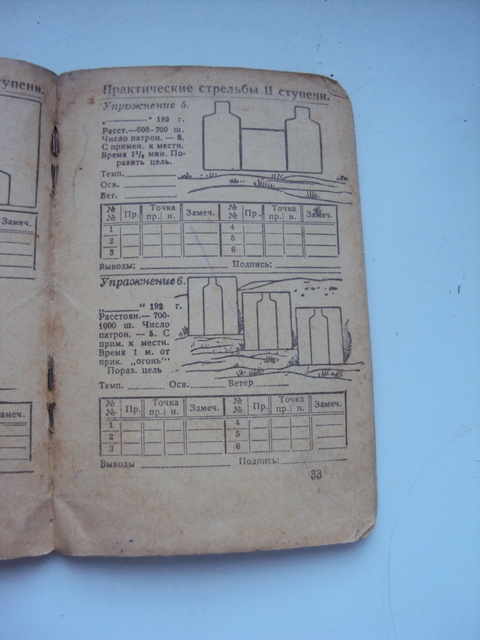 ступени.
Замеч.
Замеч.
Практические стрельбы II ступени.
Упражнение 5.
„ “ 192 г.
Расст.—600-700 ш.
Число патрон. — 6.
С примен. к местн.
Время 1½ мин. По-
разить цель.
Темп.
Осв.
Вет.
№ № Пр. Точка Замеч. № № Пр. Точка Замеч.
пр. н. пр. н.
1 4
2 5
3 6
Выводы: Подпись:
Упражнение 6.
“ 192 г.
Расстоян.— 700-
1000 ш. Число
патрон. — 5. С
прим. к местн.
Время 1 м. от
прик. „огонь“
Пораз. цель
Темп. Осв. Ветер
№ № Пр. Точка Замеч. № № Пр. Точка Замеч.
пр. н. пр. н.
1 4
2 5
3 6
Выводы Подпись:
33